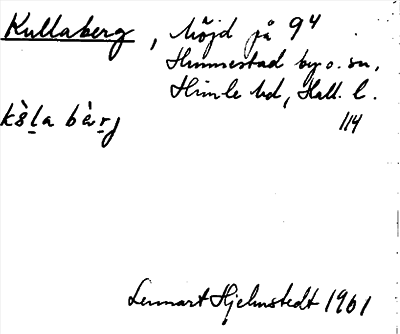 Kullaberg, höjd på 9⁴
Hunnestad by o. sn.
Himle hd, Hall. l.
114
Lennart Hjelmstedt 1961